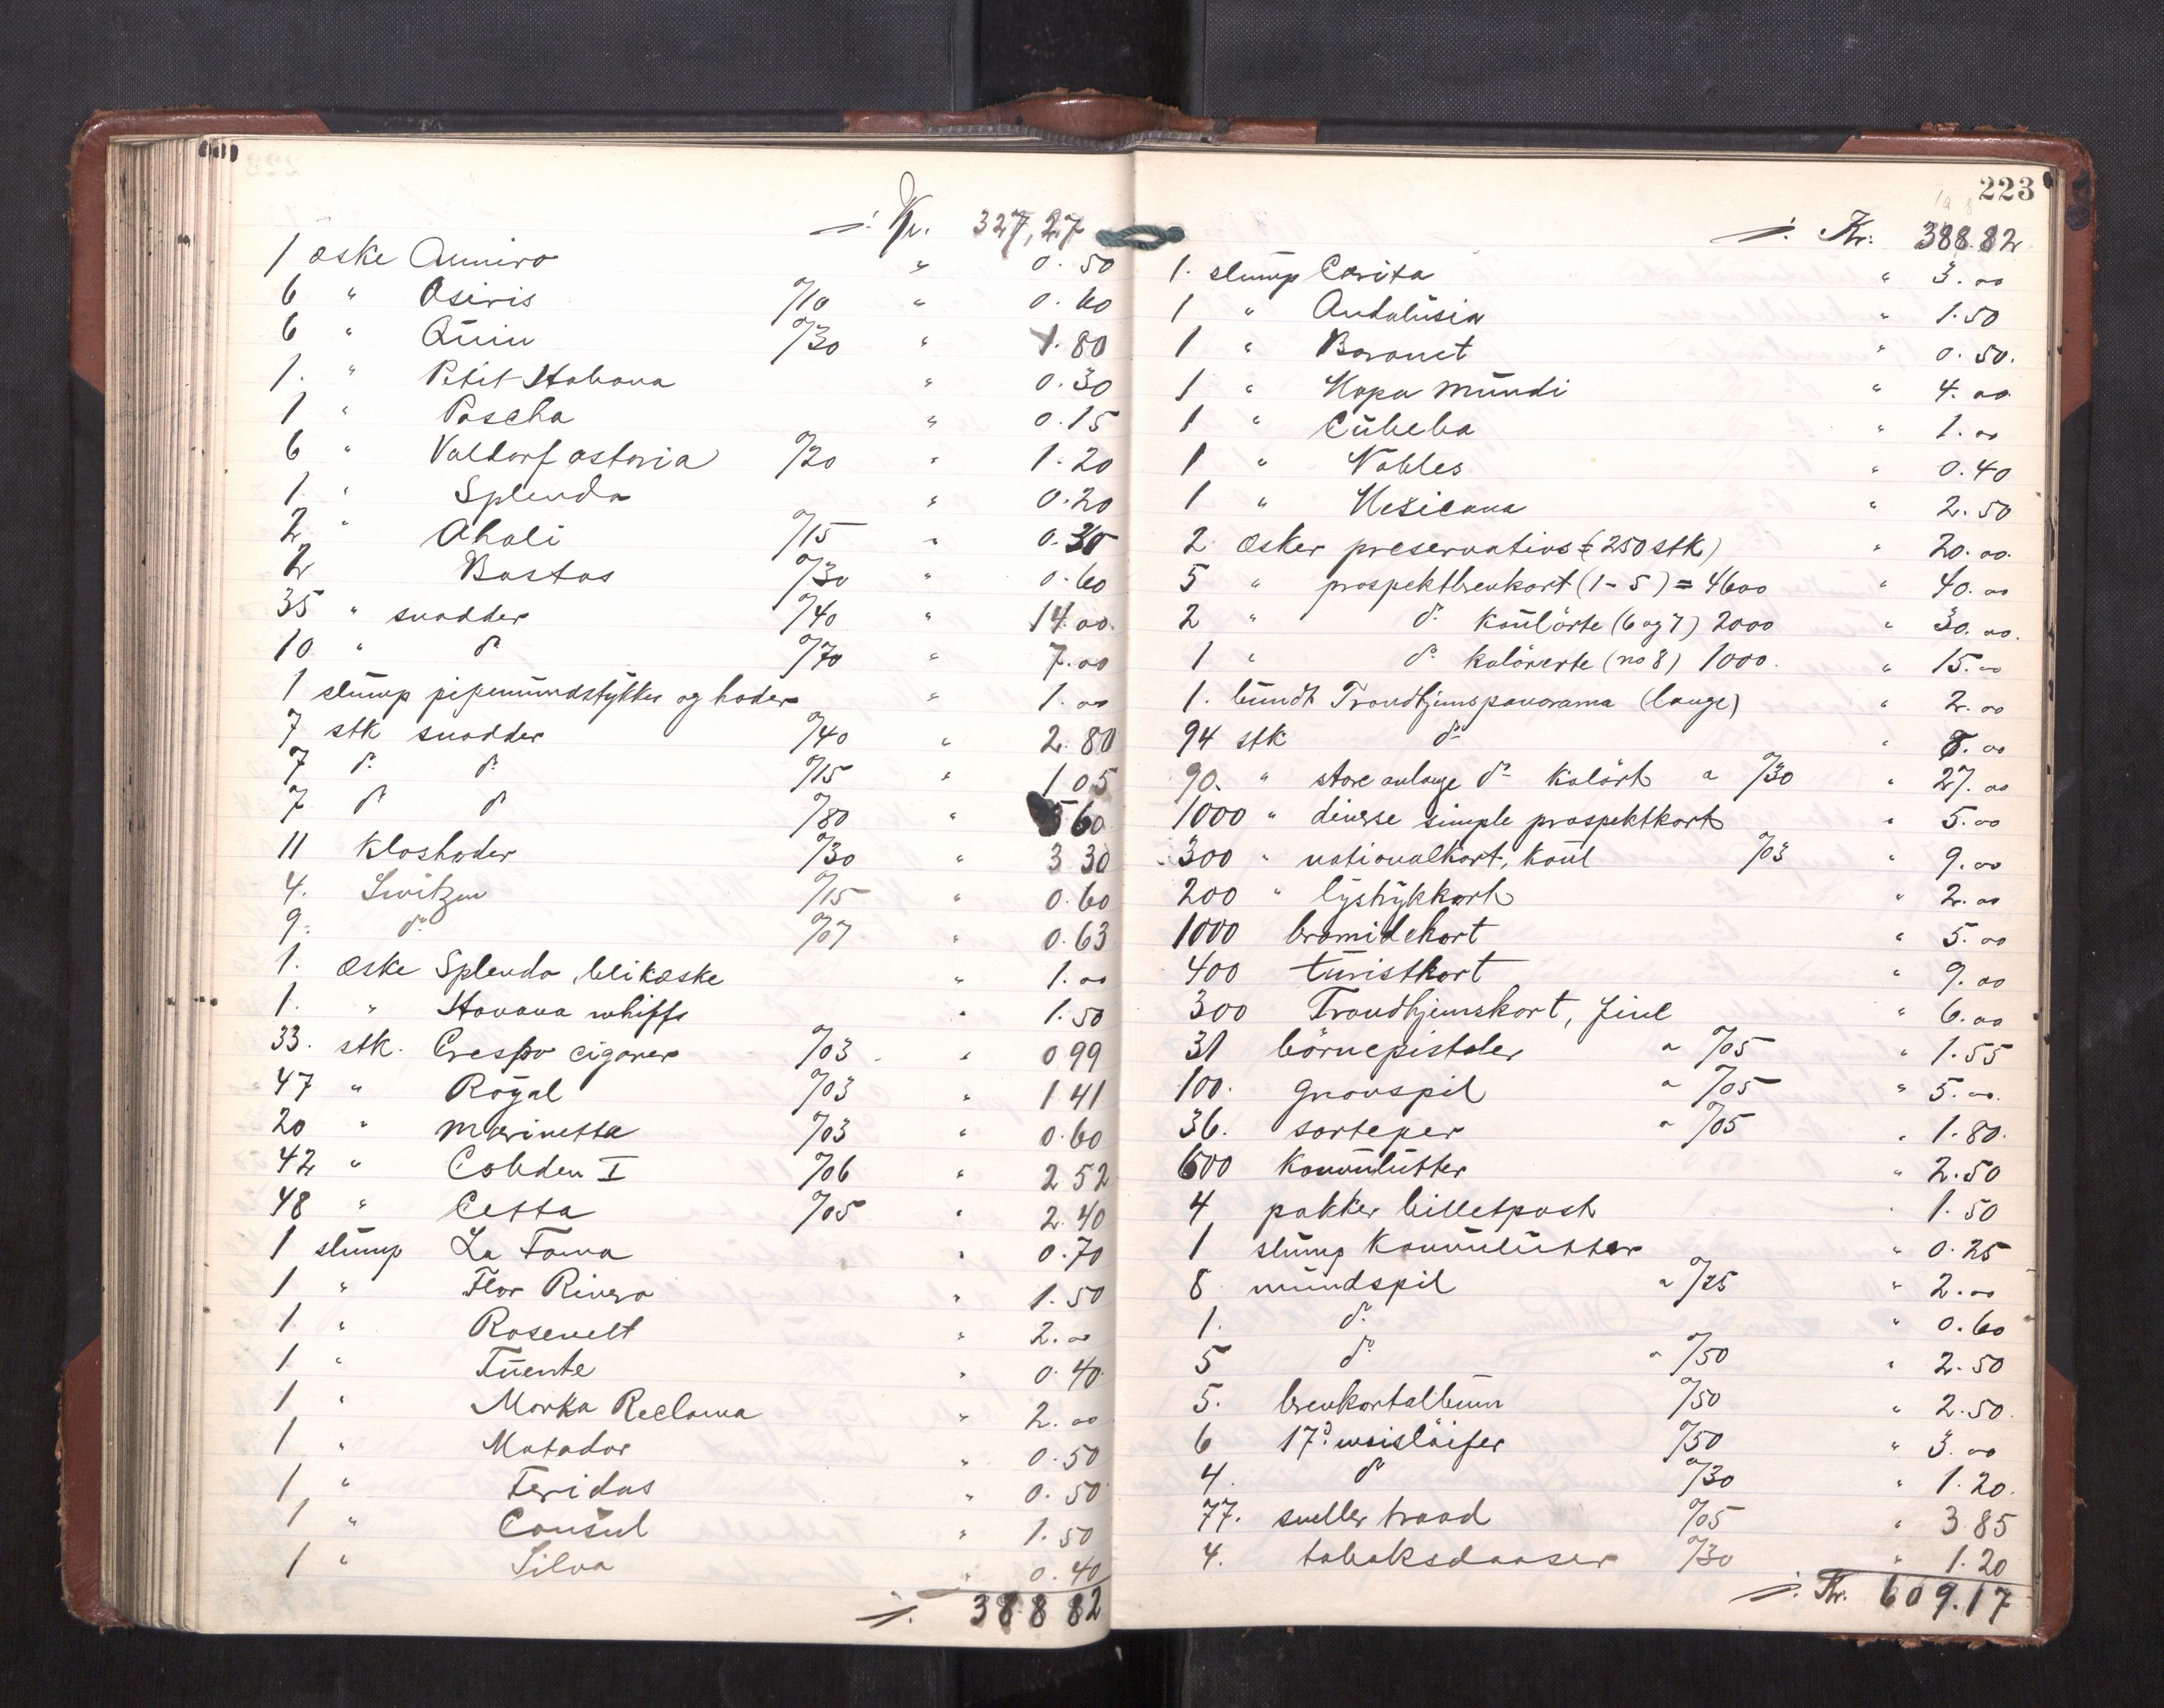 ./. Kr. 327,27
1 æske Amiro " 0.50
6 " Osiris %10 " 0.60
6 " Quin %30 " 1.80
1. " Petit Habana " 0.30
1 " Pascha " 0.15
6 " Valdorf astoria %20 " 1.20
1 " Splenda " 0.20
2 " Ahali %15 " 0.30
2 Bastos %30 " 0.60
35 " snadder %40 " 14.00
10 " do %70 " 7.00
1 slump pipemundstykker og hoder " 1.00
7 stk snadder %40 " 2.80
7 do do %15 " 1 05
7 do do %80 " 5 60
11 kloshoder %30 " 3 30
4. Switzen %15 " 0.60
9. do %07 " 0.63
1. æske Splenda, blikæske " 1.00
1. " Havana whiffs " 1.50
33. stk. Crespo cigarer %03 " 0 99
47 " Royal %03 " 1 41
20 " Marinetta %03 " 0.60
42 " Cobden I %06 " 2 52
48 " Cetta %05 " 2.40
1 slump La Fama " 0.70
1 " Flor Rivera " 1.50
1 " Rosevelt " 2.00
1 " Fuente " 0.40
1 " Marka Reclama " 2.00
1 " Matador " 0.50
1 " Feridas " 0.50
1 " Consul " 1.50
1 " Silva " 0.40
./. 388 82
223
./. Kr: 388.82
1. slump Carita " 3.00
1 " Andalusia " 1.50
1 " Baronet " 0.50.
1 " Mapa Mundi " 4.00
1 " Cubeba " 1.00
1 " Nobles " 0.40
1 " Mexicana " 2.50
2 æsker preservativs (250 stk) " 20.00.
5 " prospektbrevkort (1-5) = 4600 " 40.00
2 " do koulörte (6 og 7) 2000 " 30.00.
1 " do kulörerte (no 8) 1000. " 15.00
1. bundt Trondhjemspanorama (lange) " 2.00
94 stk do " 8.00
90. " store aulange do kulört a %30 " 27.00
1000 " diverse simple prospektkort " 5.00
300 " nationalkort, koul %03 " 9.00
200 " lystrykkort " 2.00
1000 bromidekort " 5.00
400 turistkort " 9.00
300 Trondhjemskort, Jinl " 6.00
31 börnepistoler a %05 " 1.55
100. gnavspil a %05 " 5.00.
36. sorteper a %05 " 1.80.
600 konvulutter " 2.50
4 pakker billetpost 1.50
1 slump konvulutter " 0.25
8 mundspil a %25 " 2.00
1. do " 0.60
5 do a %50 " 2.50
5. brevkortalbum %50 " 2.50.
6 17de maisløifer %50 " 3.00
4. do %30 " 1.20.
77. sneller traad %05 " 3.85
4. tobaksdaaser %30 " 1.20
./. Kr. 609.17